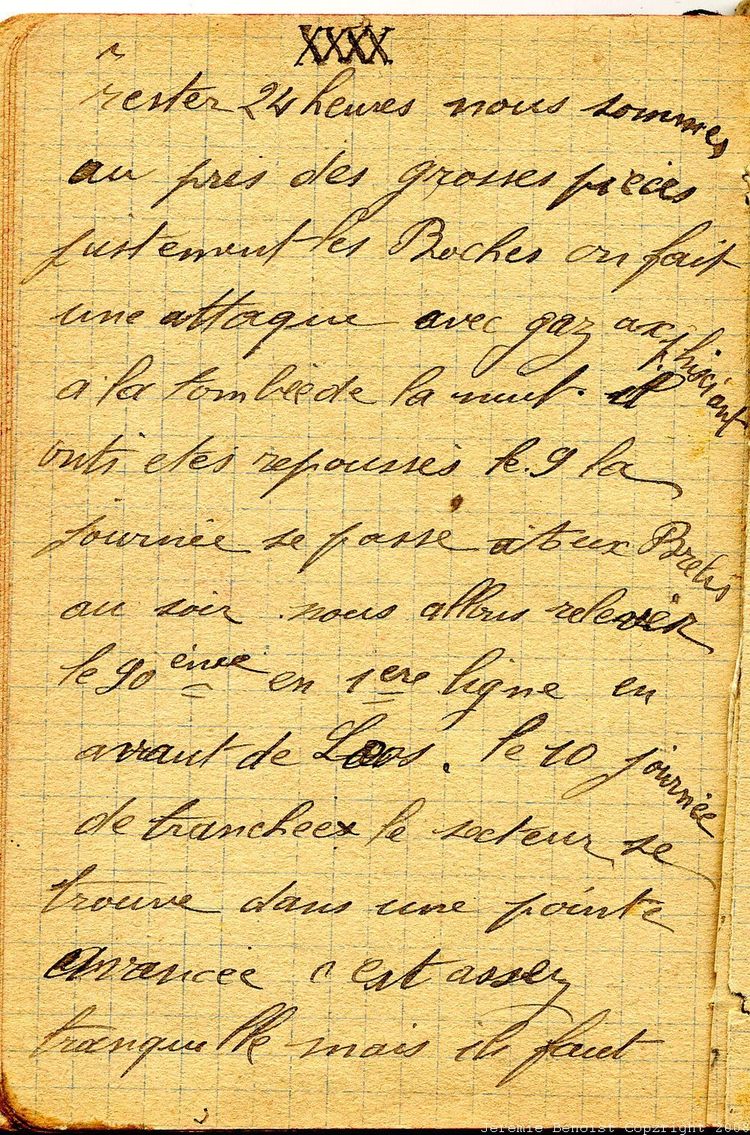 XXXX
rester 24 heures nous sommes
au pres des grosses pieces
justement les Boches on fait
une attaque avec gaz axphisciant
a la tombée de la nuit. et
onti etes repoussés le 9 la
journée se passe aux Brebis
au soir nous allons relever
le 90 ème en 1ere ligne en
avant de Loos. le 10 journée
de tranchees le secteur se
trouve dans une pointe
avancée c est assez
tranquille mais ils faut
Jeremie Benoist Copyright